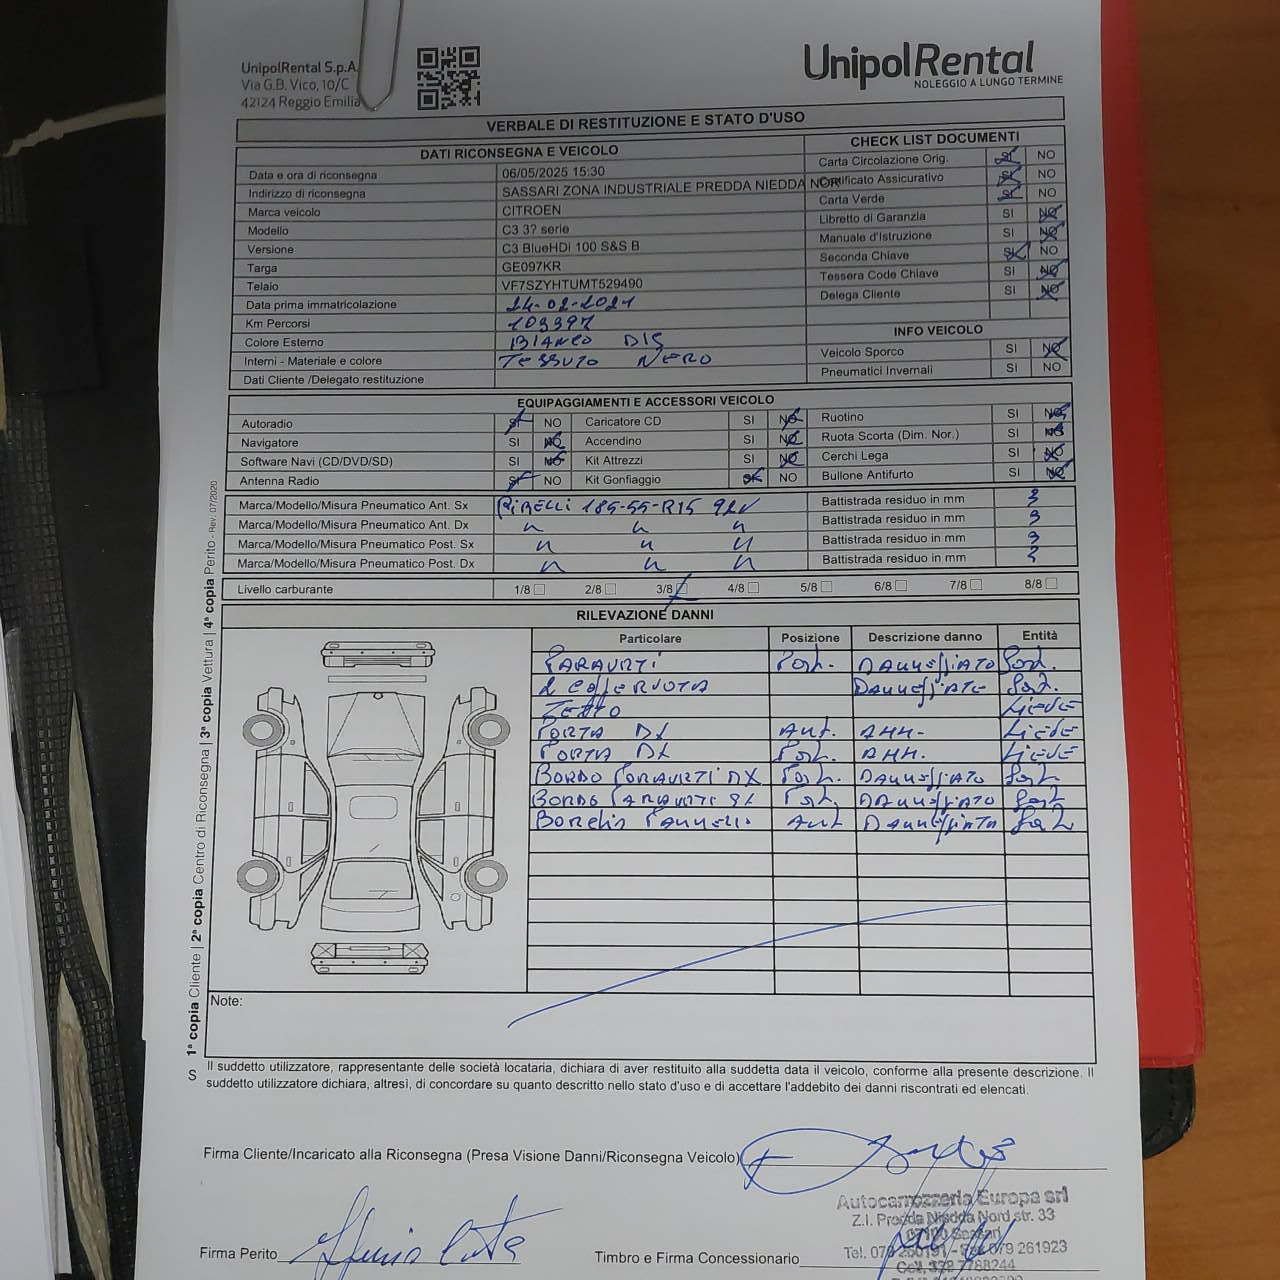 UnipolRental S.p.A.
Via G.B. Vico, 10/C
42124 Reggio Emilia
UnipolRental
NOLEGGIO A LUNGO TERMINE
VERBALE DI RESTITUZIONE E STATO D'USO
DATI RICONSEGNA E VEICOLO
Data e ora di riconsegna 06/05/2025 15:30
Indirizzo di riconsegna SASSARI ZONA INDUSTRIALE PREDDA NIEDDA NOR
Marca veicolo CITROEN
Modello C3 3? serie
Versione C3 BlueHDi 100 S&S B
Targa GE097KR
Telaio VF7SZYHTUMT529490
Data prima immatricolazione 24-02-2021
Km Percorsi 103397
Colore Esterno BIANCO
Interni - Materiale e colore TESSUTO NERO
Dati Cliente /Delegato restituzione
CHECK LIST DOCUMENTI
Carta Circolazione Orig. SI NO
Certificato Assicurativo SI NO
Carta Verde SI NO
Libretto di Garanzia SI NO
Manuale d'Istruzione SI NO
Seconda Chiave SI NO
Tessera Code Chiave SI NO
Delega Cliente SI NO
INFO VEICOLO
Veicolo Sporco SI NO
Pneumatici Invernali SI NO
EQUIPAGGIAMENTI E ACCESSORI VEICOLO
Autoradio SI NO Caricatore CD SI NO Ruotino SI NO
Navigatore SI NO Accendino SI NO Ruota Scorta (Dim. Nor.) SI NO
Software Navi (CD/DVD/SD) SI NO Kit Attrezzi SI NO Cerchi Lega SI NO
Antenna Radio SI NO Kit Gonfiaggio SI NO Bullone Antifurto SI NO
Marca/Modello/Misura Pneumatico Ant. Sx PIRELLI 185-55-R15 Battistrada residuo in mm 3
Marca/Modello/Misura Pneumatico Ant. Dx " " " Battistrada residuo in mm 3
Marca/Modello/Misura Pneumatico Post. Sx " " " Battistrada residuo in mm 3
Marca/Modello/Misura Pneumatico Post. Dx " " " Battistrada residuo in mm 3
Livello carburante 1/8 2/8 3/8 4/8 5/8 6/8 7/8 8/8
RILEVAZIONE DANNI
Particolare Posizione Descrizione danno Entità
PARAURTI Post. DANNEGGIATO Sost.
2 COPPERUOTA DANNEGGIATE Sost.
TETTO LIEVE
PORTA DX Ant. AMM. LIEVE
PORTA DX Post. AMM. LIEVE
BORDO PARAURTI DX Post. DANNEGGIATO Sost.
BORDO PARAURTI Post. DANNEGGIATO Sost.
Ant DANNEGGIATO Sost.
Note:
Il suddetto utilizzatore, rappresentante delle società locataria, dichiara di aver restituito alla suddetta data il veicolo, conforme alla presente descrizione. Il
suddetto utilizzatore dichiara, altresì, di concordare su quanto descritto nello stato d'uso e di accettare l'addebito dei danni riscontrati ed elencati.
S
1ª copia Cliente | 2ª copia Centro di Riconsegna | 3ª copia Vettura | 4ª copia Perito - Rev. 07/2020
Firma Cliente/Incaricato alla Riconsegna (Presa Visione Danni/Riconsegna Veicolo)
Autocarrozzeria Europa srl
Z.I. Predda Niedda Nord str. 33
07100 Sassari
Tel. 079 260191 - Fax 079 261923
Firma Perito
Timbro e Firma Concessionario